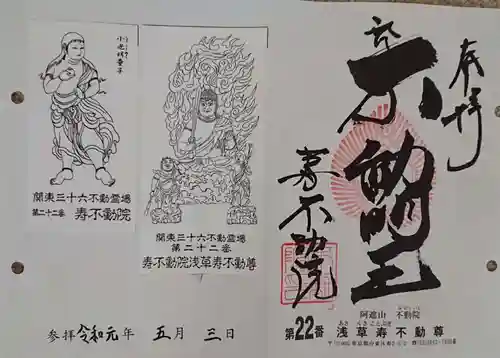 小光明童子
関東三十六不動霊場
第二十二番 寿不動院
関東三十六不動霊場
第二十二番
寿不動院浅草寿不動尊
参拝令和元年 五月 三日
奉拝
不動明王
寿不動院
阿遮山 不動院
第22番 浅草寿不動尊